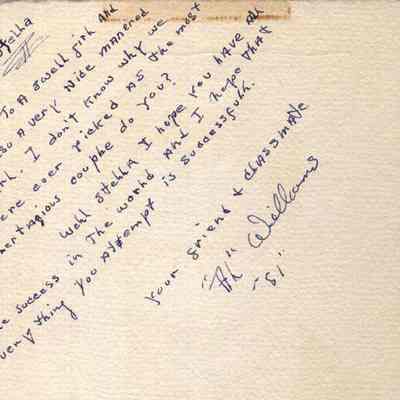 Stella
To A swell girl And
so A very Nice manered
rl. I don't know why we
ere ever picked AS the most
tagious couple do you?
Well Stella I hope you have All
e success in The world And I hope that
very thing you Attempt is successfull.
your friend + classmate
"Al" Williams
"51"